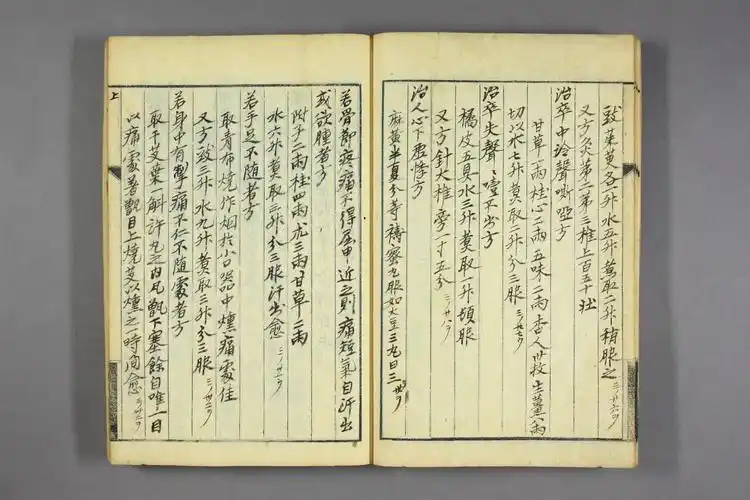 豉茱萸各一升水五升煮取二升稍服之 三ノ廿六ウ
又方灸第二第三椎上百五十壮
治卒中冷聲嘶啞方
甘草一兩桂心二兩五味二兩杏人卅枚生薑八兩
切以水七升煑取二升分三服 三ノ廿七ウ
治卒失聲〻噎不出方
橘皮五具水三升煑取一升頓服
又方針大椎旁一寸五分 三ノ廿八ウ
治人心下虚悸方
麻黄半夏分等擣蜜丸服如大豆三丸日三
若骨節疼痛不得屈申近之則痛短氣自汗出
或欲腫者方
附子二兩桂四兩尤三兩甘草二兩
水六升煑取三升分三服汗出愈
若手足不随者方
取青布燒作烟於小器中燻痛處佳
又方豉三升水九升煑取三升分三服
若身中有掣痛不仁不随處者方
取干艾葉一斛許丸之内瓦甑下塞餘目唯一目
以痛處著甑目上燒艾以燻之一時间愈
上